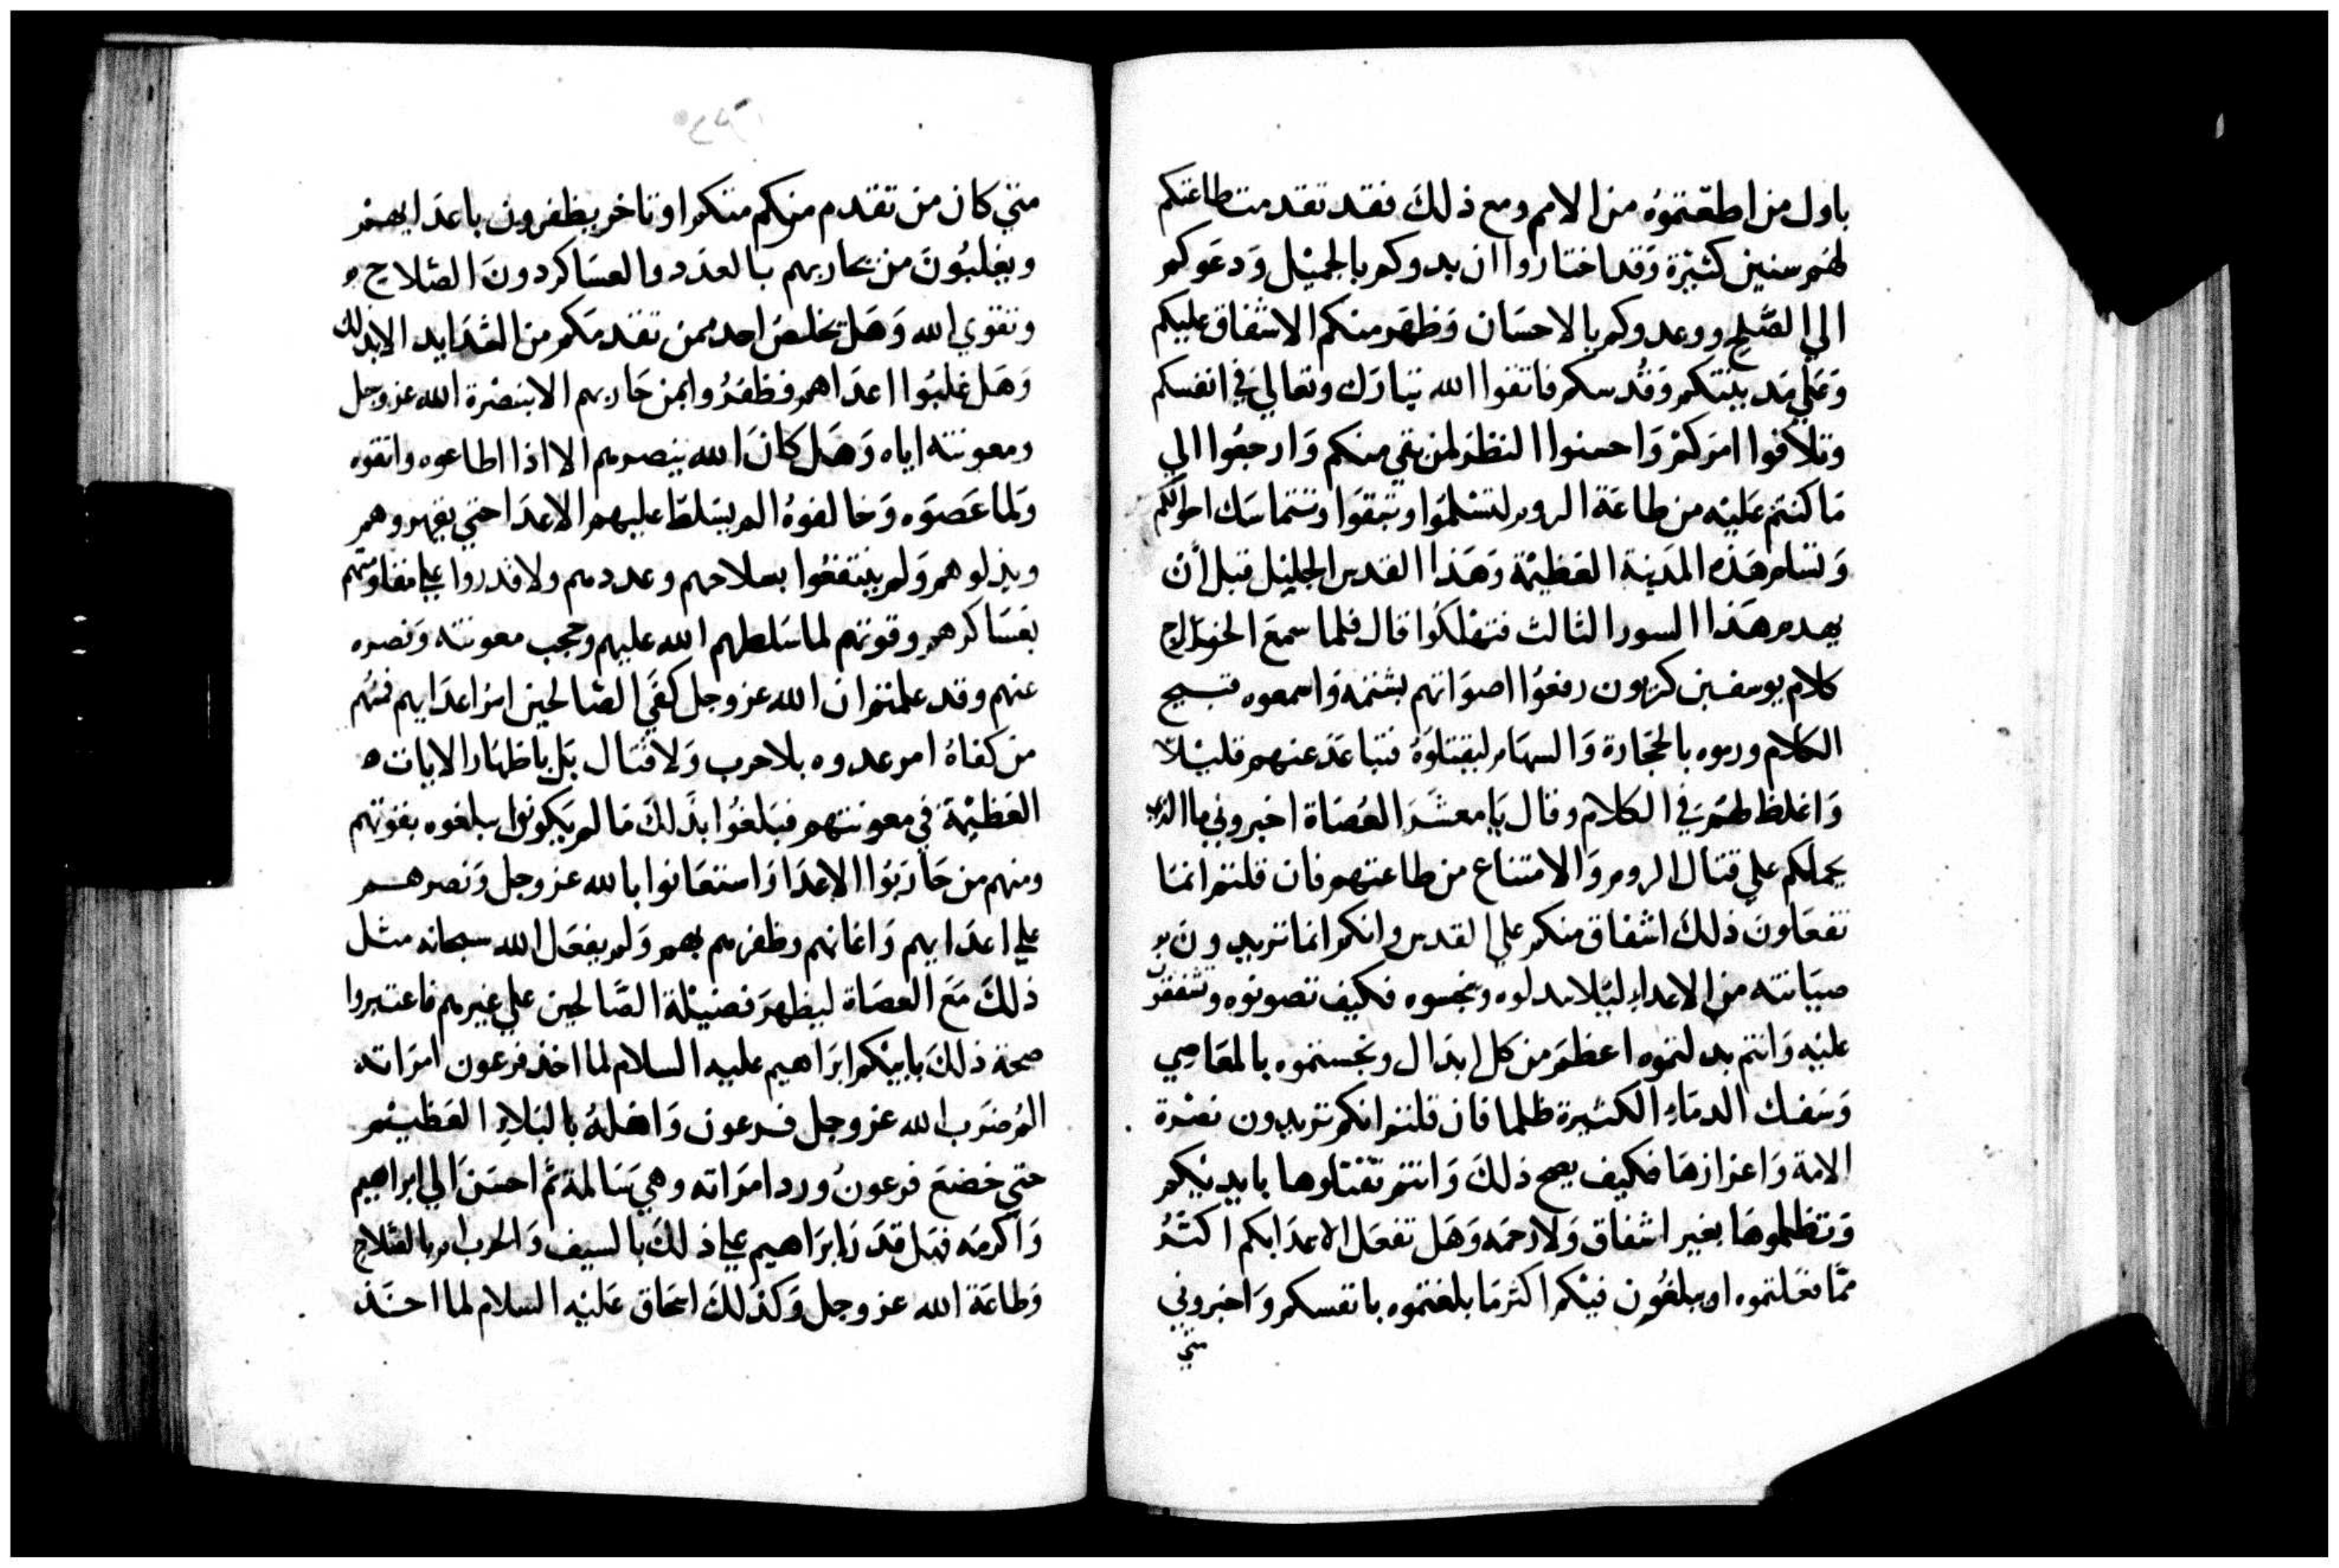 باول من اطعتموه من الامم ومع ذلك فقد تقدمت طاعتكم
لهم سنين كثيرة وقد اختاروا ان يبدوكم بالجميل ودعوكم
الي الصلح ووعدوكم بالاحسان وظهر منكم الاشفاق عليكم
وعلي مدينتكم وقدسكم فاتقوا الله تبارك وتعالي في انفسكم
وتلافوا امركم واحسنوا النظر لمن بقي منكم وارجعوا الي
ما كنتم عليه من طاعة الروم لتسلموا وتبقوا وتتماسك احوالكم
وتسلم هذه المدينة العظيمة وهذا القدس الجليل قبل أن
يهدم هذا السور الثالث فتهلكوا قال فلما سمع الخوارج
كلام يوسف بن كربون رفعوا اصواتهم بشتمه واسمعوه قبيح
الكلام ورموه بالحجارة والسهام ليقتلوه فتباعد عنهم قليلا
واغلظ لهم في الكلام وقال يا معشر العصاة اخبروني ما الذي
يحملكم علي قتال الروم والامتناع من طاعتهم فان قلتم انما
تفعلون ذلك اشفاق منكم علي القدس وانكم انما تريدون
صيانته من الاعداء ليلا يبدلوه وينجسوه فكيف تصونوه وتشفقون
عليه وانتم بدلتموه اعظم من كل ابدال ونجستموه بالمعاصي
وسفك الدماء الكثيرة ظلما فان قلتم انكم تريدون نصرة
الامة واعزازها فكيف يصح ذلك وانتم تقتلوها بايديكم
وتظلموها بغير اشفاق ولا رحمه وهل تفعل الاعدا بكم اكثر
مما فعلتموه او يبلغون فيكم اكثر ما بلغتموه بانفسكم واخبروني
متي
متي كان من تقدم منكم متكلا وتاخر يظفرون باعدايهم
ويغلبون من يحاربهم بالعدد والعساكر دون الصلاح
وتقوي الله وهل تخلص احد ممن تقدمكم من الشدايد الا بذلك
وهل غلبوا اعداهم فظفروا بمن حاربهم الا بنصرة الله عز وجل
ومعونته اياه وهل كان الله ينصرهم الا اذا اطاعوه واتقوه
ولما عصوه وخالفوه الم يسلط عليهم الاعدا حتي يقهروهم
ويذلوهم ولم ينتفعوا بسلاحهم وعددهم ولا قدروا علي مقاومتهم
بعساكرهم وقوتهم لما سلطهم الله عليهم وحجب معونته ونصره
عنهم وقد علمتم ان الله عز وجل كفي الصالحين امر اعدايهم فمنهم
من كفاه امر عدوه بلا حرب ولا قتال بل باظهار الايات
العظيمة في معونتهم فبلغوا بذلك ما لم يكونوا يبلغوه بقوتهم
ومنهم من حاربوا الاعدا واستعانوا بالله عز وجل ونصرهم
علي اعدايهم واعانهم وظفرهم بهم ولم يفعل الله سبحانه مثل
ذلك مع العصاة ليظهر فضيلة الصالحين علي غيرهم فاعتبروا
صحة ذلك بابيكم ابراهيم عليه السلام لما اخذ فرعون امراته
الم ضرب الله عز وجل فرعون واهله بالبلاء العظيم
حتي خضع فرعون ورد امراته وهي سالمة ثم احسن الي ابراهيم
واكرمه فهل قدر ابراهيم علي ذلك بالسيف والحرب ام بالصلاح
وطاعة الله عز وجل وكذلك اسحاق عليه السلام لما احـذ